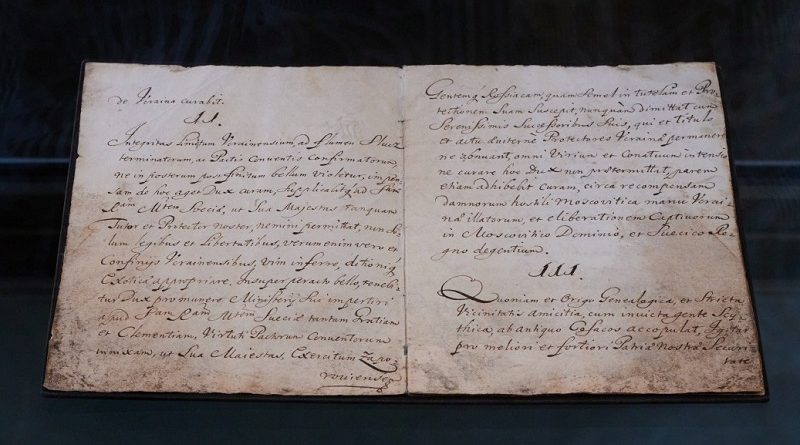 de Vcraina curabit.
II.
Integritas Limitum Vcrainensium, ad flumen Sluiz
terminatorum, ac Pactis Conventis Confirmatorum,
ne in posterum post finitum bellum violetur,
sam de hoc aget Dux curam, Supplicabitq ad San
Lam Mtem Sueciæ, ut Sua Majestas tanquam
Tutor et Protector noster, nemini permittat, non So
lum legibus et Libertatibus, verum enim vero et
Confinijs Vcrainensibus, vim inferre, ditioniq
Exoticæ appropriare. Insuper peracto bello, teneb
itur Dux pro munere Ministerij Sui impertiri
apud San Lam Mtem Sueciæ tantam Gratiam
et Clementiam, Virtuti Pactorum Conventorum
innixam, ut Sua Maiestas, Exercitum Zapo
roviensem
Gentemq Rossiacam, quam Semel in tutelam et Pro
tectionem Suam Suscepit, nunquam dimittat cum
Serenissimis Successoribus Suis, qui et titulo
et actu duiternè Protectores Vcrainæ permanere
ne renuant, omni Virium et Conatuum intensio
ne curare hoc Dux non prætermittat, parem
etiam adhibebit curam, circa recompensam
damnorum hostili Moscovitica manu Vcrai
næ illatorum, et eliberationem Captivorum
in Moscovitico Dominio, et Suecico Re
gno degentium.
III.
Quoniam et Origo Genealogica, et Stricta
Vicinitatis amicitia, cum invicta gente Scy
thica, ab antiquo Cosacos accopulat, Igitur
pro meliori et fortiori Patriæ Nostræ Securi
tate